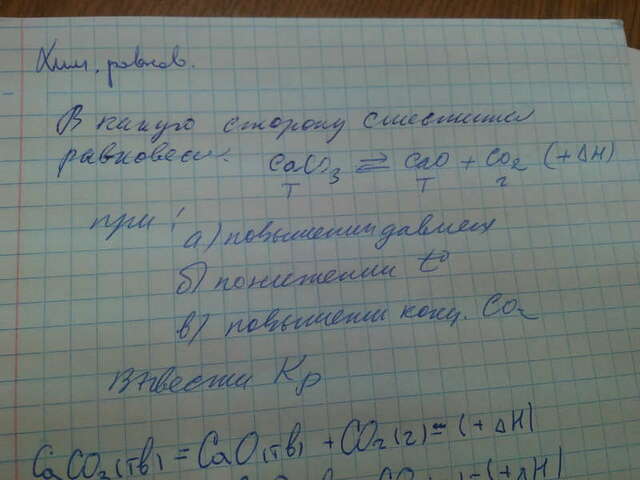 Хим. равнов.
В какую сторону сместится
равновеси. CaCO3 ⇄ CaO + CO2 (+ΔH)
т т г
при:
а) повышении давлен
б) понижении t°
в) повышени конц. CO2
Вывести Kp
CaCO3(тв) = CaO(тв) + CO2(г) = (+ΔH)